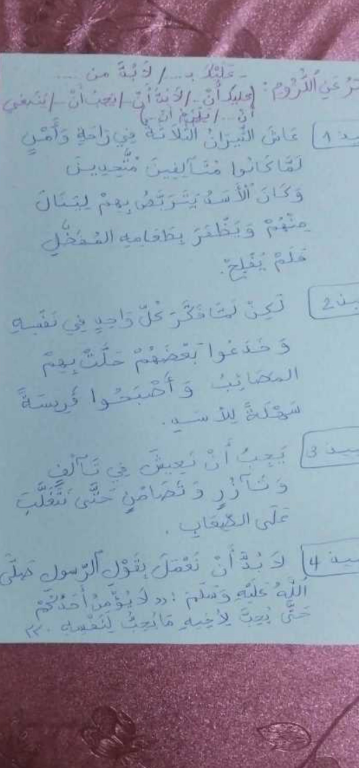 عَلَيْكَ بـ ... / لَابُدَّ من ....
عَنِ اللُّزُومِ : (عليك أَنْ../ لَابُدَّ أَنْ../ يَجِبُ أَنْ../ يَنْبَغِي
أَنْ ../ يَلْزَمُ أَنْ ..)
1 عَاشَ الثِّيرَانُ الثَّلَاثَةُ فِي رَاحَةٍ وَأَمْنٍ
لَمَّا كَانُوا مُتَآلِفِينَ مُتَّحِدِينَ
وَكَانَ الأَسَدُ يَتَرَبَّصُ بِهِمْ لِيَنَالَ
مِنْهُمْ وَيَظْفَرَ بِطَعَامِهِ المُفَضَّلِ
فَلَمْ يُفْلِحْ.
2 لَكِنْ لَمَّا فَكَّرَ كُلُّ وَاحِدٍ فِي نَفْسِهِ
وَخَدَعُوا بَعْضَهُمْ حَلَّتْ بِهِمْ
المَصَائِبُ وَأَصْبَحُوا فَرِيسَةً
سَهْلَةً لِلأَسَدِ.
3 يَجِبُ أَنْ نَعِيشَ فِي تَآلُفٍ
وَتَآزُرٍ وَتَضَامُنٍ حَتَّى نَتَغَلَّبَ
عَلَى الصِّعَابِ.
4 لَابُدَّ أَنْ نَعْمَلَ بِقَوْلِ الرَّسُولِ صَلَّى
اللهُ عَلَيْهِ وَسَلَّمَ : « لَا يُؤْمِنُ أَحَدُكُمْ
حَتَّى يُحِبَّ لِأَخِيهِ مَا يُحِبُّ لِنَفْسِهِ ».